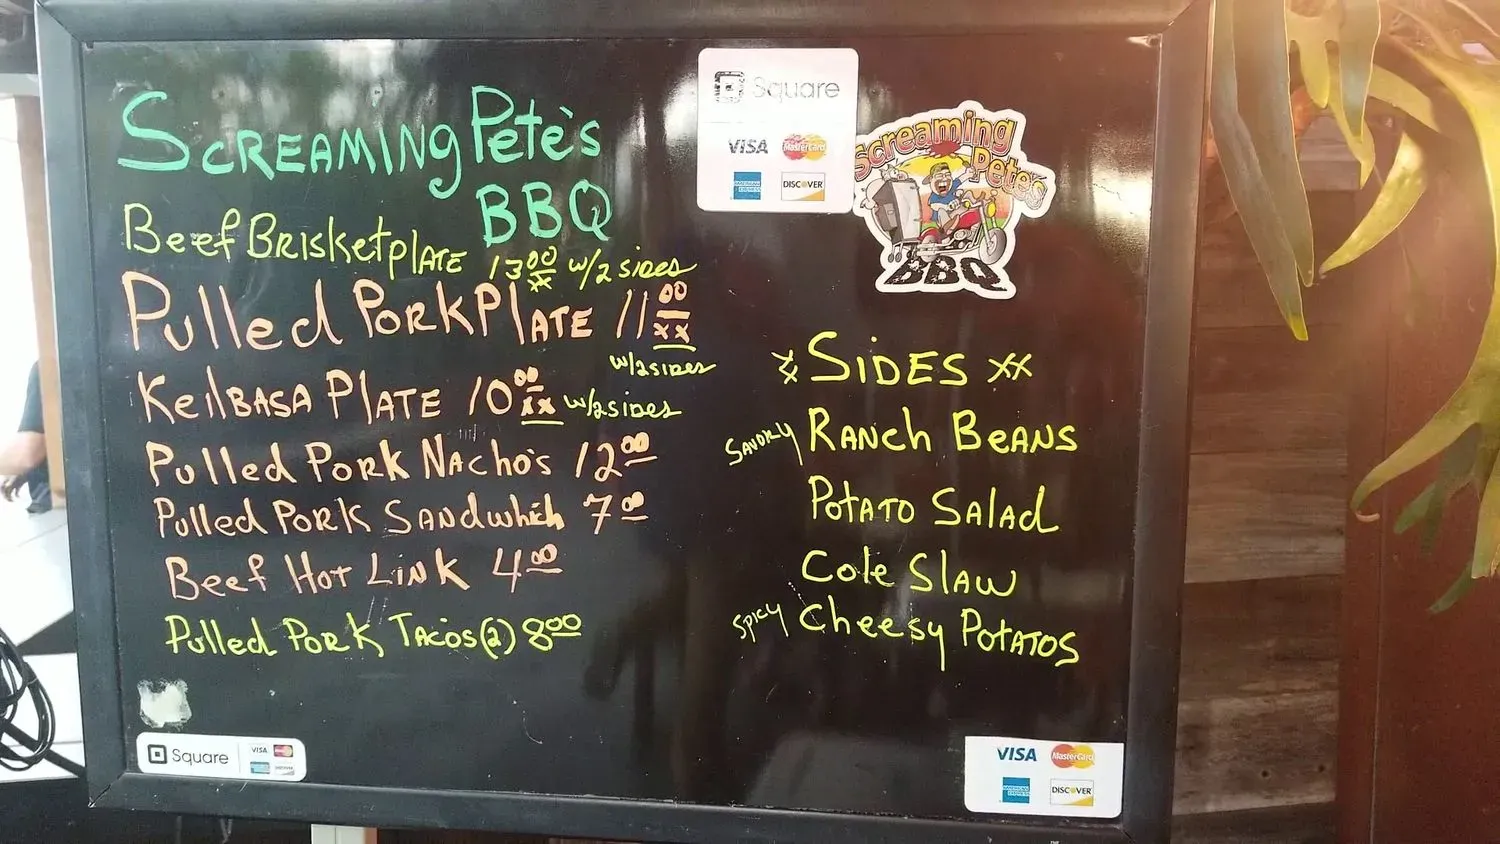 SCREAMING Pete's
BBQ
Beef BRisket plATE 13.00 xx w/2 sides
Pulled PORK PlATE 11.00 xx
w/2 sides
KeilBASA PlATE 10.00 xx w/2 sides
Pulled PORK NAcho's 12.00
Pulled PORK SANdwhich 7.00
Beef HOT LINK 4.00
Pulled PORK TAcos (2) 8.00
Square
VISA MasterCard
AMERICAN EXPRESS DISCOVER
Screaming
Pete's
BBQ
xx SIDES xx
SAVORY RANch BeANS
POTATO SAlAd
Cole SlAW
SPICY Cheesy POTATOS
Square VISA MasterCard
AMERICAN EXPRESS DISCOVER
VISA MasterCard
AMERICAN EXPRESS DISCOVER